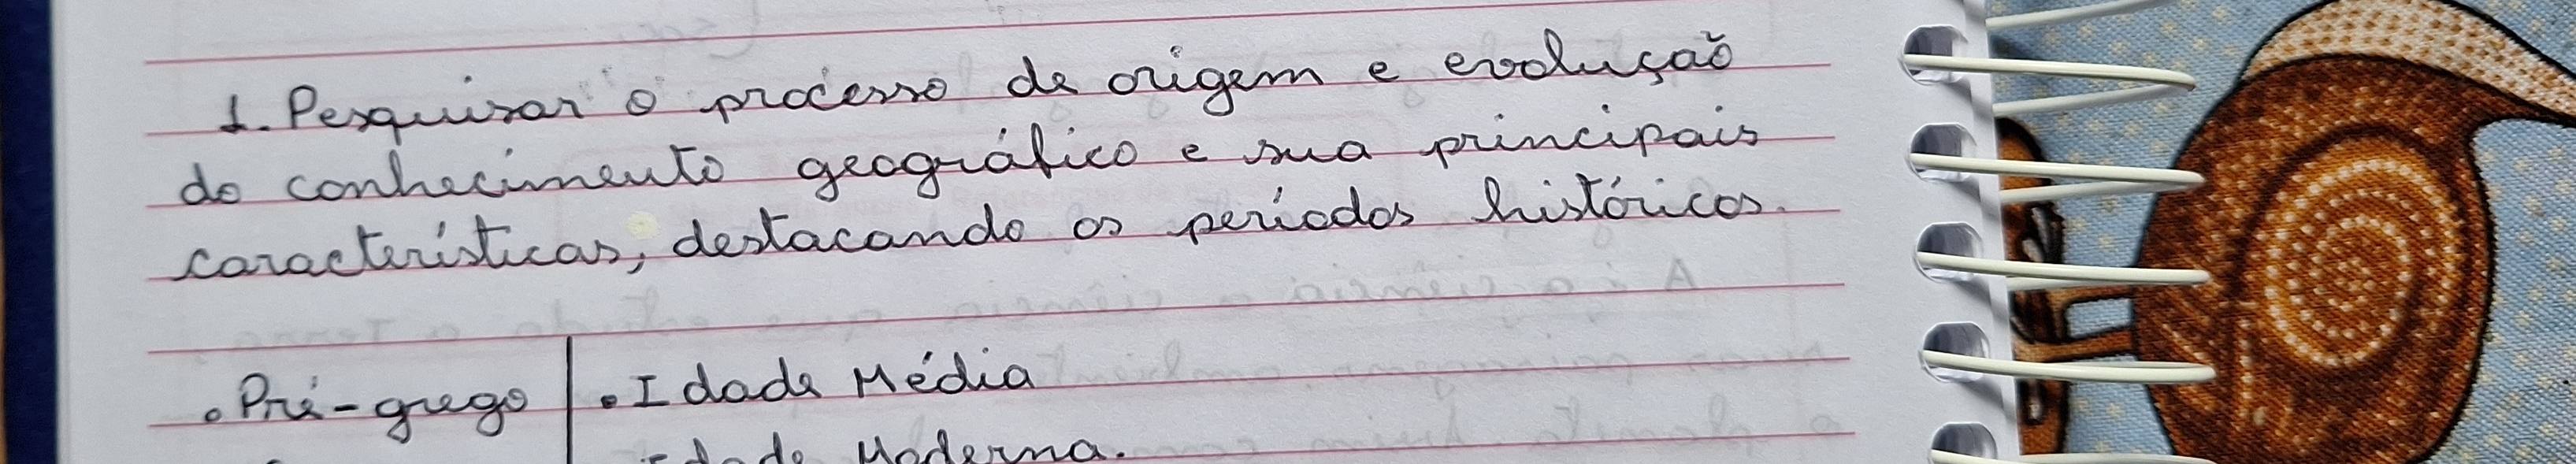 1. Pesquisar o processo de origem e evolução
do conhecimento geográfico e sua principais
características, destacando os períodos históricos.
• Pré-grego | • Idade Média
Idade Moderna.